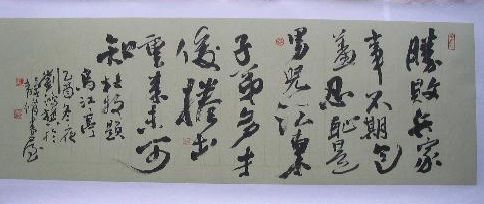 勝敗兵家
事不期包
羞忍恥是
男兒江東
子弟多才
俊捲土
重來未可
知杜牧題
烏江亭
乙酉冬夜
劉於